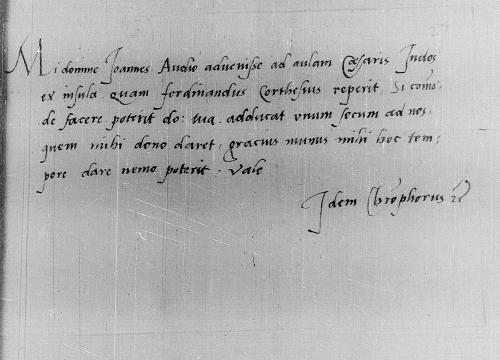 Mi domine Joannes Audio advenisse ad aulam Cæsaris Indos
ex insula quam ferdinandus Corthesius reperit, Si comõ,
de facere poterit do: tua adducat unum secum ad nos,
quem mihi dono daret, gracius munus mihi hoc tem,
pore dare nemo poterit. Vale
Idem Chrõphorus